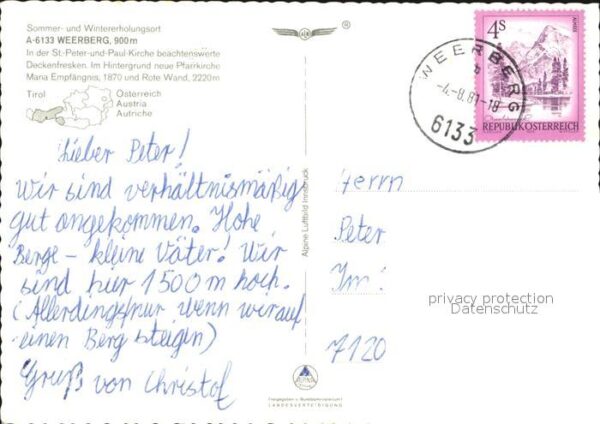 Sommer- und Wintererholungsort
A-6133 WEERBERG, 900m
In der St.-Peter-und-Paul-Kirche beachtenswerte
Deckenfresken. Im Hintergrund neue Pfarrkirche
Maria Empfängnis, 1870 und Rote Wand, 2220m
Tirol
Österreich
Austria
Autriche
Lieber Peter!
Wir sind verhältnismäßig
gut angekommen. Hohe
Berge – kleine Väter! Wir
sind hier 1500m hoch.
(Allerdings nur wenn wir auf
einen Berg steigen)
Gruß von Christof
Alpine Luftbild Innsbruck
ALPINE
Freigegeben v. Bundesministerium f.
LANDESVERTEIDIGUNG
WEERBERG
b
-4.-8.81-18
6133
4S
REPUBLIK ÖSTERREICH
Herrn
Peter
Im:
7120
privacy protection
Datenschutz